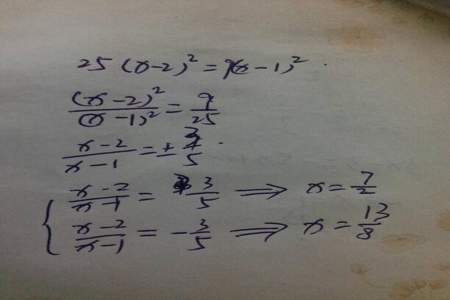 25 (x-2)² = 9(x-1)².
(x-2)²/(x-1)² = 9/25
(x-2)/(x-1) = ± 3/5.
{ (x-2)/(x-1) = 3/5 ⟹ x = 7/2
(x-2)/(x-1) = -3/5 ⟹ x = 13/8